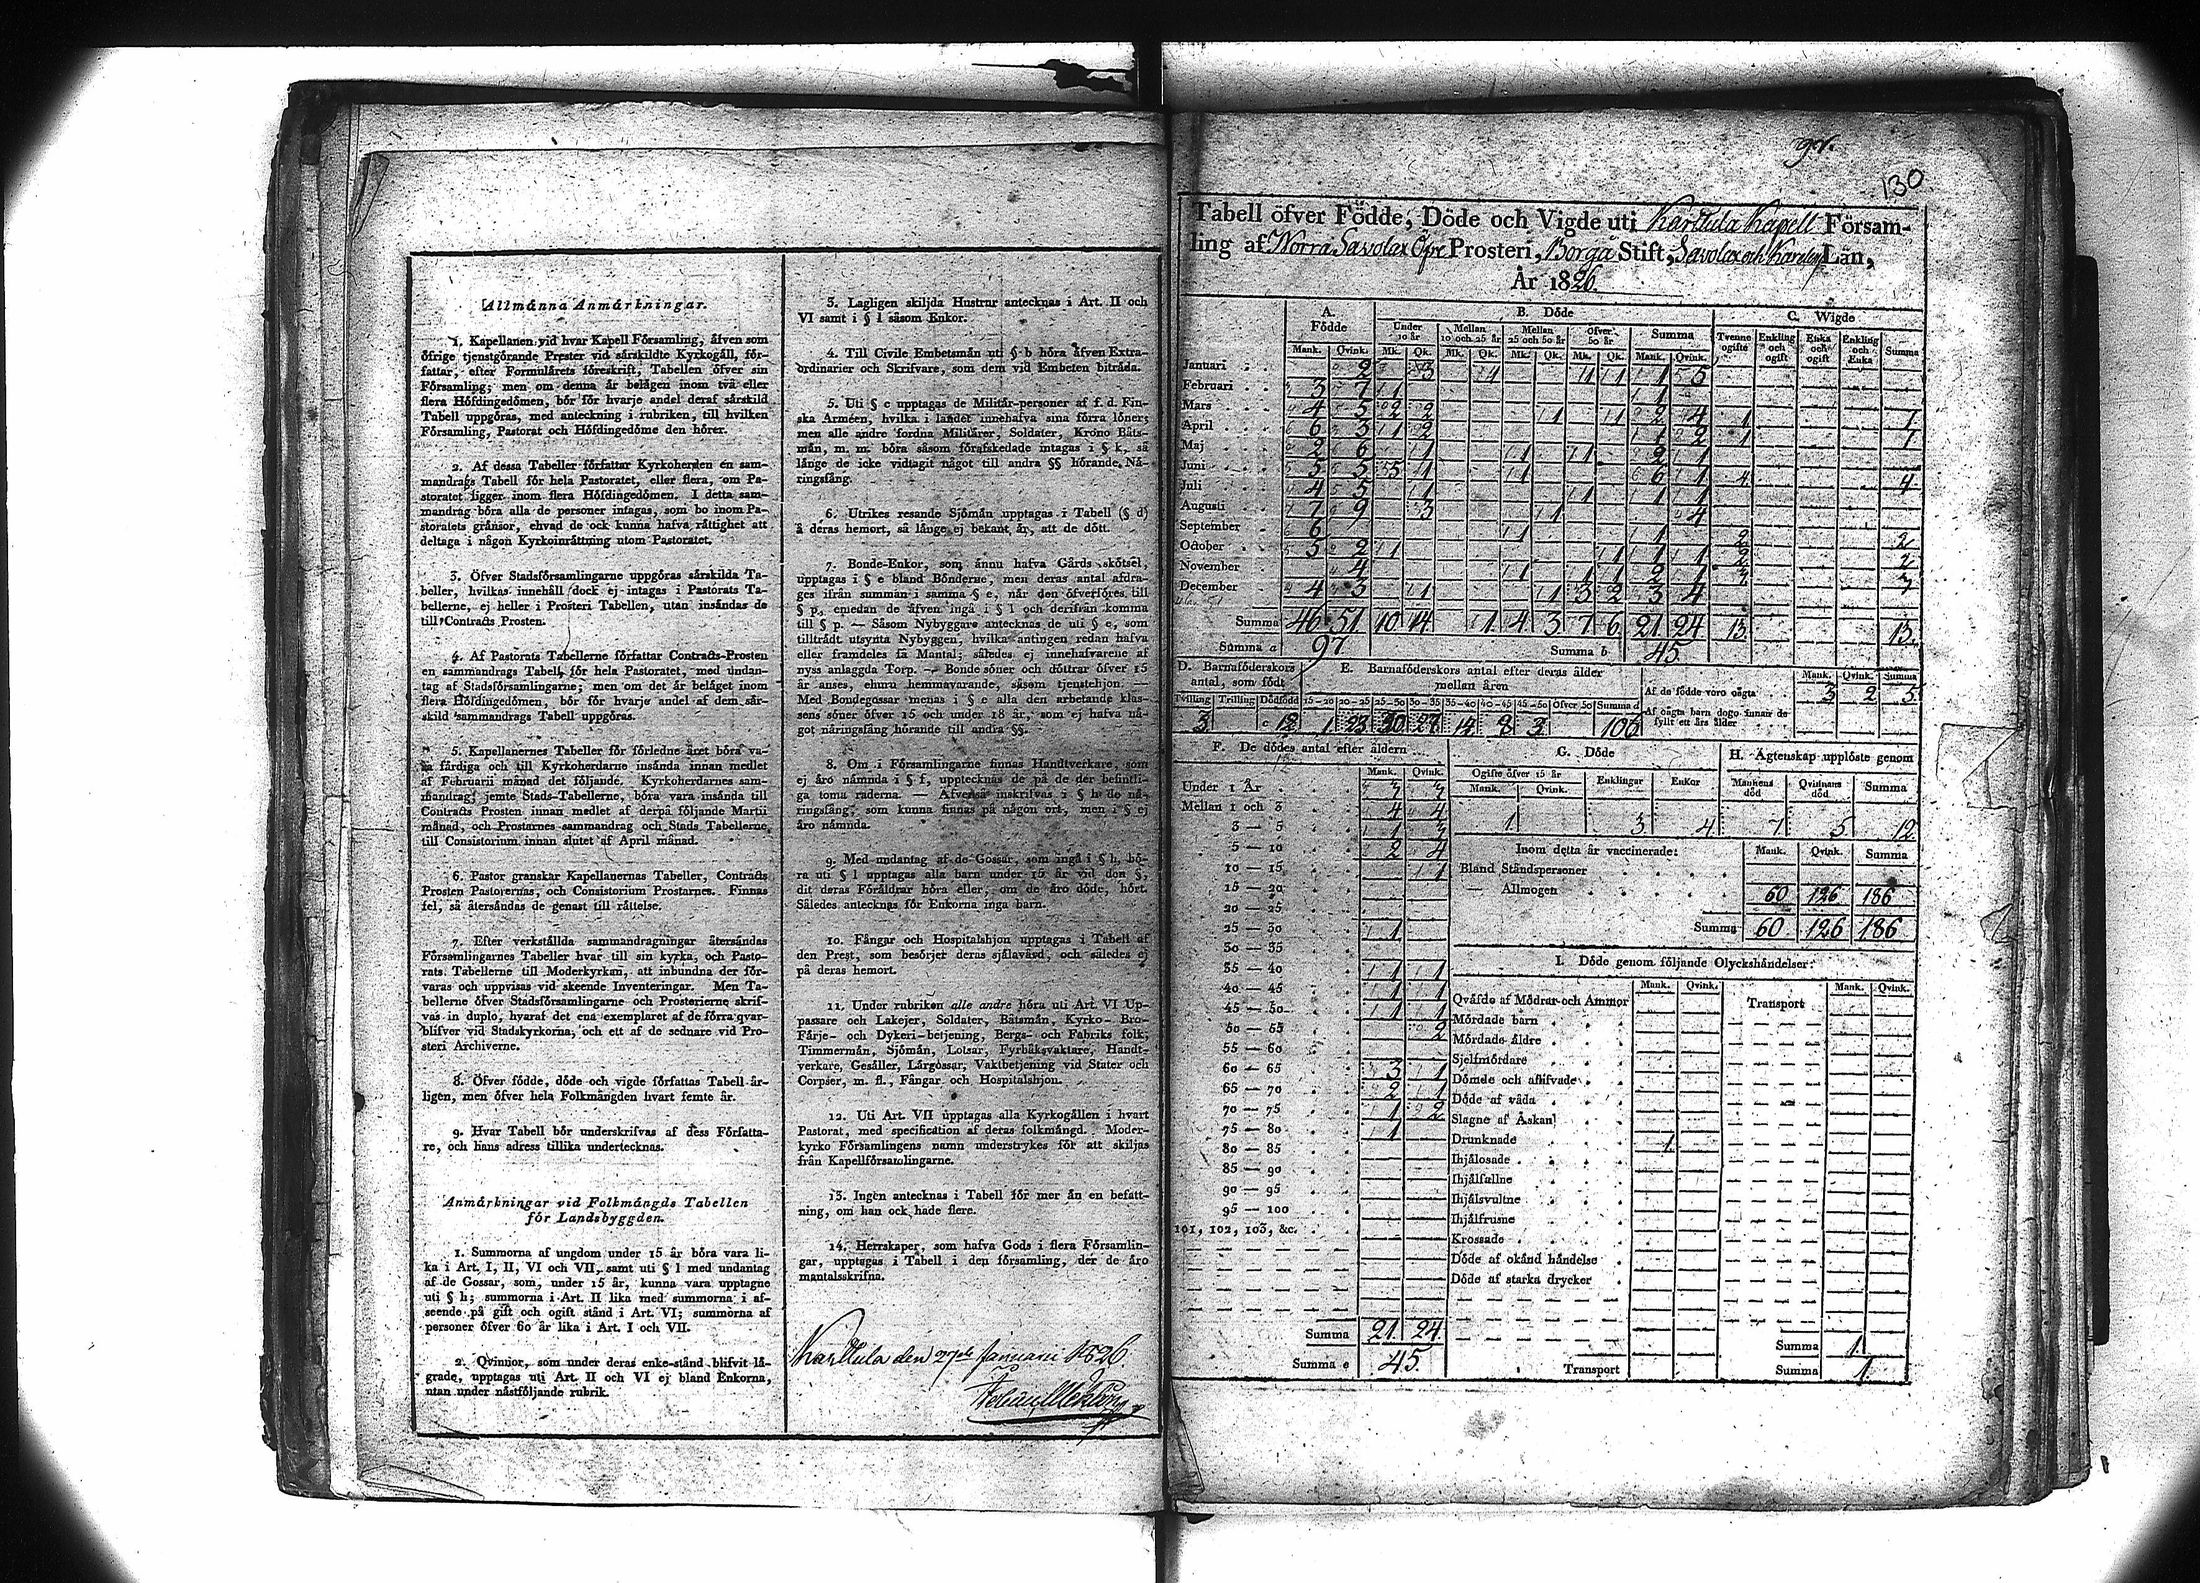 Allmánna Anmárkningar.
1. Kapellanen vid hvar Kapell Fórsamling, áfven som
ófrige tjenstgórande Prester vid sárskildte Kyrkogáll, fór-
fattar, efter Formulárets fóreskrift, Tabellen ófver sin
Fórsamling; men om denna år belågen inom två eller
flera Hófdingedómen, bór fór hvarje andel deraf sárskild
Tabell uppgóras, med anteckning i rubriken, till hvilken
Fórsamling, Pastorat och Hófdingedóme den hórer.
2. Af dessa Tabeller fórfattar Kyrkoherden en sam-
mandrags Tabell fór hela Pastoratet, eller flera, om Pa-
storatet ligger inom flera Hófdingedómen. I detta sam-
mandrag bóra alla de personer intagas, som bo inom Pa-
storatets gránsor, ehvad de ock kunna hafva ráttighet att
deltaga i någon Kyrkoinráttning utom Pastoratet.
3. Ófver Stadsfórsamlingarne uppgóras sárskilda Ta-
beller, hvilkas innehåll dock ej intagas i Pastorats Ta-
bellerne, ej heller i Prosteri Tabellen, utan insándas de
till Contracts Prosten.
4. Af Pastorats Tabellerne fórfattar Contracts-Prosten
en sammandrags Tabell fór hela Pastoratet, med undan-
tag af Stadsfórsamlingarne; men om det år belåget inom
flera Hófdingedómen, bór fór hvarje andel af dem sár-
skild sammandrags Tabell uppgóras.
5. Kapellanernes Tabeller fór fórledne året bóra va-
ra fárdiga och till Kyrkoherden insánda innan medlet
af Februarii månad det fóljande. Kyrkoherdarnes sam-
mandrag, jemte Stads-Tabellerne, bóra vara insánda till
Contracts Prosten innan medlet af derpå fóljande Martii
månad, och Prostarnes sammandrag och Stads Tabellerne,
till Consistorium innan slutet af April månad.
6. Pastor granskar Kapellanernas Tabeller, Contracts
Prosten Pastorernas, och Consistorium Prostarnes. Finnas
fel, så återsándas de genast till ráttelse.
7. Efter verkstállda sammandragningar återsándas
Fórsamlingarnes Tabeller hvar till sin kyrka, och Pasto-
rats Tabellerne till Moderkyrkan, att inbundna der fór-
varas och uppvisas vid skeende Inventeringar. Men Ta-
bellerne ófver Stadsfórsamlingarne och Prosterierne skrif-
vas in duplo, hvaraf det ena exemplaret af de fórra qvar-
blifver vid Stadskyrkorna, och ett af de sednare vid Pro-
steri Archiverne.
8. Ófver fódde, dóde och vigde fórfattas Tabell år-
ligen, men ófver hela Folkmángden hvart femte år.
9. Hvar Tabell bór underskrifvas af dess Fórfatta-
re, och hans adress tillika undertecknas.
Anmárkningar vid Folkmángds Tabellen
fór Landsbyggden.
1. Summorna af ungdom under 15 år bóra vara li-
ka i Art. I, II, VI och VII, samt uti § 1 med undantag
af de Gossar, som, under 15 år, kunna vara upptagne
uti § h; summorna i Art. II lika med summorna i af-
seende på gift och ogift stånd i Art. VI; summorna af
personer ófver 60 år lika i Art. I och VII.
2. Qvinnor, som under deras enke-stånd blifvit lå-
grade, upptagas uti Art. II och VI ej bland Enkorna,
utan under nástfóljande rubrik.
3. Lagligen skiljda Hustrur antecknas i Art. II och
VI samt i § l såsom Enkor.
4. Till Civile Embetsmán uti § b hóra áfven Extra-
ordinarier och Skrifvare, som dem vid Embeten bitráda.
5. Uti § c upptagas de Militár-personer af f. d. Fin-
ska Arméen, hvilka i landet innehafva sina fórra lóner;
men alle andre fordna Militárer, Soldater, Krono Båts-
mán, m. m. bóra såsom fórafskedade intagas i § k, så
lánge de icke vidtagit något till andra §§ hórande Ná-
ringsfång.
6. Utrikes resande Sjómán upptagas i Tabell (§ d)
å deras hemort, så lánge ej bekant ár, att de dótt.
7. Bonde-Enkor, som ánnu hafva Gårds skótsel,
upptagas i § e bland Bónderne, men deras antal afdra-
ges ifrån summan i samma § e, når den ófverfóres till
§ p, emedan de áfven ingå i § l och derifrån komma
till § p. — Såsom Nybyggare antecknas de uti § e, som
tilltrádt utsynta Nybyggen, hvilka antingen redan hafva
eller framdeles få Mantal; således ej innehafvarene af
nyss anlaggda Torp. — Bonde sóner och dóttrar ófver 15
år anses, ehuru hemmavarande, såsom tjenstehjon. —
Med Bondegossar menas i § e alla den arbetande klas-
sens sóner ófver 15 och under 18 år, som ej hafva nå-
got náringsfång hórande till andra §§.
8. Om i Fórsamlingarne finnas Handtverkare, som
ej áro námnda i § f, upptecknas de på de der befintli-
ga toma raderna. — Áfvenså inskrifvas i § h de ná-
ringsfång, som kunna finnas på någon ort, men i § ej
áro námnda.
9. Med undantag af de Gossar, som ingå i § h, bó-
ra uti § l upptagas alla barn under 15 år vid den §,
dit deras Fóráldrar hóra eller, om de áro dóde, hórt.
Således antecknas fór Enkorna inga barn.
10. Fångar och Hospitalshjon upptagas i Tabell af
den Prest, som besórjer deras sjálavård, och således ej
på deras hemort.
11. Under rubriken alle andre hóra uti Art. VI Up-
passare och Lakejer, Soldater, Båtsmán, Kyrko- Bro-
Fárje- och Dykeri-betjening, Bergs- och Fabriks folk,
Timmermán, Sjómán, Lotsar, Fyrbåksvaktare, Handt-
verkare, Gesáller, Lárgossar, Vaktbetjening vid Stater och
Corpser, m. fl., Fångar och Hospitalshjon.
12. Uti Art. VII upptagas alla Kyrkogállen i hvart
Pastorat, med specification af deras folkmángd. Moder-
kyrko Fórsamlingens namn understrykes fór att skiljas
från Kapellfórsamlingarne.
13. Ingen antecknas i Tabell fór mer án en befatt-
ning, om han ock hade flere.
14. Herrskaper, som hafva Gods i flera Fórsamlin-
gar, upptagas i Tabell i den fórsamling, der de áro
mantalsskrifna.
Karttula den 27de Januarii 1826.
130
Tabell öfver Födde, Döde och Vigde uti Karttula Kapell Försam-
ling af Norra Savolax Öfre Prosteri, Borgå Stift, Savolax och Karelens Län,
År 1826.
A. Födde B. Döde C. Wigde
Under 10 år Mellan 10 och 25 år Mellan 25 och 50 år Öfver 50 år Summa Tvenne ogifte Enkling och ogift Enka och ogift Enkling och Enka Summa
Mank. Qvink. Mk. Qk. Mk. Qk. Mk. Qk. Mk. Qk. Mank. Qvink.
Januari 2 3 1 1 1 1 5
Februari 3 7 1 1
Mars 4 5 2 2 1 1 2 4 1 1
April 6 3 1 2 1 2 1 1
Maj 2 6 1 1 1 2 1
Juni 5 5 5 1 1 6 1 4 4
Juli 4 5 1 1 1 1
Augusti 7 9 3 1 4
September 6 1 1 2 2
October 5 2 1 1 1 1 2 2
November 4 1 1 1 2 1 3
December 4 3 1 1 3 2 3 4
Summa 46 51 10 14 1 4 3 7 6 21 24 13 13
Summa a 97 Summa b 45.
D. Barnaföderskors antal, som födt
Tvilling Trilling Dödfödd
3 c 12
E. Barnaföderskors antal efter deras ålder mellan åren
15—20 20—25 25—30 30—35 35—40 40—45 45—50 öfver 50 Summa d
1 23 30 27 14 8 3 106
Mank. Qvink. Summa
Af de födde voro oägta 3 2 5
Af oägta barn dogo innan de fyllt ett års ålder
F. De dödes antal efter åldern
Mank. Qvink.
Under 1 År 3 3
Mellan 1 och 3 4 4
3 — 5 1 3
5 — 10 2 4
10 — 15 1
15 — 20
20 — 25
25 — 30 1
30 — 35
35 — 40 1 1
40 — 45 1 1
45 — 50 1 1
50 — 55 2
55 — 60
60 — 65 3 1
65 — 70 2 1
70 — 75 1 2
75 — 80 1
80 — 85
85 — 90
90 — 95
95 — 100
101, 102, 103, &c.
Summa 21 24
Summa e 45.
G. Döde
Ogifte öfver 15 år Enklingar Enkor
Mank. Qvink.
1 3 4
H. Ägtenskap upplöste genom
Mannens död Qvinnans död Summa
7 5 12
Inom detta år vaccinerade: Mank. Qvink. Summa
Bland Ståndspersoner
— Allmogen 60 126 186
Summa 60 126 186
I. Döde genom följande Olyckshändelser:
Mank. Qvink. Transport Mank. Qvink.
Qväfde af Mödrar och Ammor
Mördade barn
Mördade äldre
Sjelfmördare
Dömde och aflifvade
Döde af våda
Slagne af Åskan
Drunknade 1.
Ihjälosade
Ihjälfallne
Ihjälsvultne
Ihjälfrusne
Krossade
Döde af okänd händelse
Döde af starka drycker
Summa 1.
Transport Summa 1.